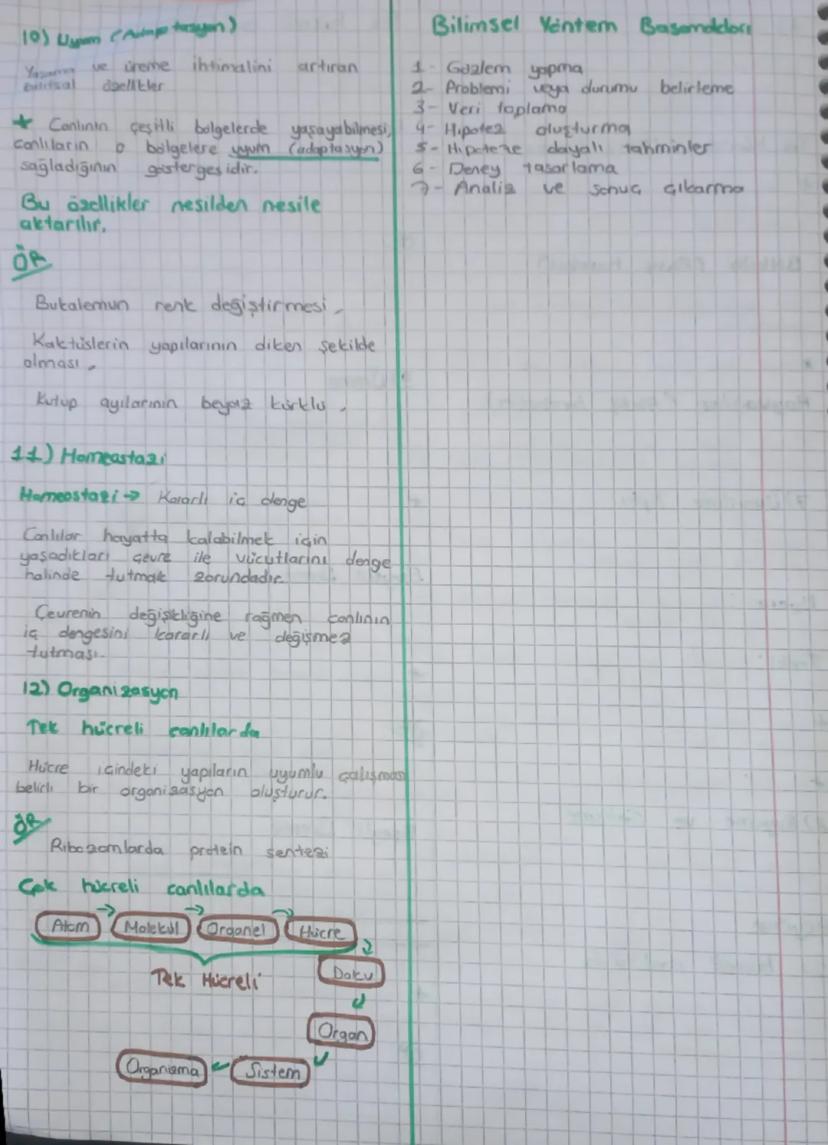 10) Uyum (Adaptasyon)
Yaşama ve üreme ihtimalini artıran
kalıtsal özellikler
★ Canlının çeşitli bölgelerde yaşayabilmesi,
canlıların o bölgelere uyum (adaptasyon)
sağladığının göstergesidir.
Bu özellikler nesilden nesile
aktarılır.
ÖR
Bukalemun renk değiştirmesi.
Kaktüslerin yapılarının diken şekilde
olması.
Kutup ayılarının beyaz kürklü.
11) Homeostazi
Homeostazi → Kararlı iç denge
Canlılar hayatta kalabilmek için
yaşadıkları çevre ile vücutlarını denge
halinde tutmak zorundadır
Çevrenin değişikliğine rağmen canlının
iç dengesini kararlı ve değişmez
tutması.
12) Organizasyon
Tek hücreli canlılarda
Hücre içindeki yapıların uyumlu çalışması
belirli bir organizasyon oluşturur.
ÖR
Ribozomlarda protein sentezi
Çok hücreli canlılarda
Atom → Molekül → Organel → Hücre
Tek Hücreli
Doku
Organ
Organizma Sistem
Bilimsel Yöntem Basamakları
1- Gözlem yapma
2- Problemi veya durumu belirleme
3- Veri toplama
4- Hipotez oluşturma
5- Hipoteze dayalı tahminler
6- Deney tasarlama
7- Analiz ve sonuç çıkarma